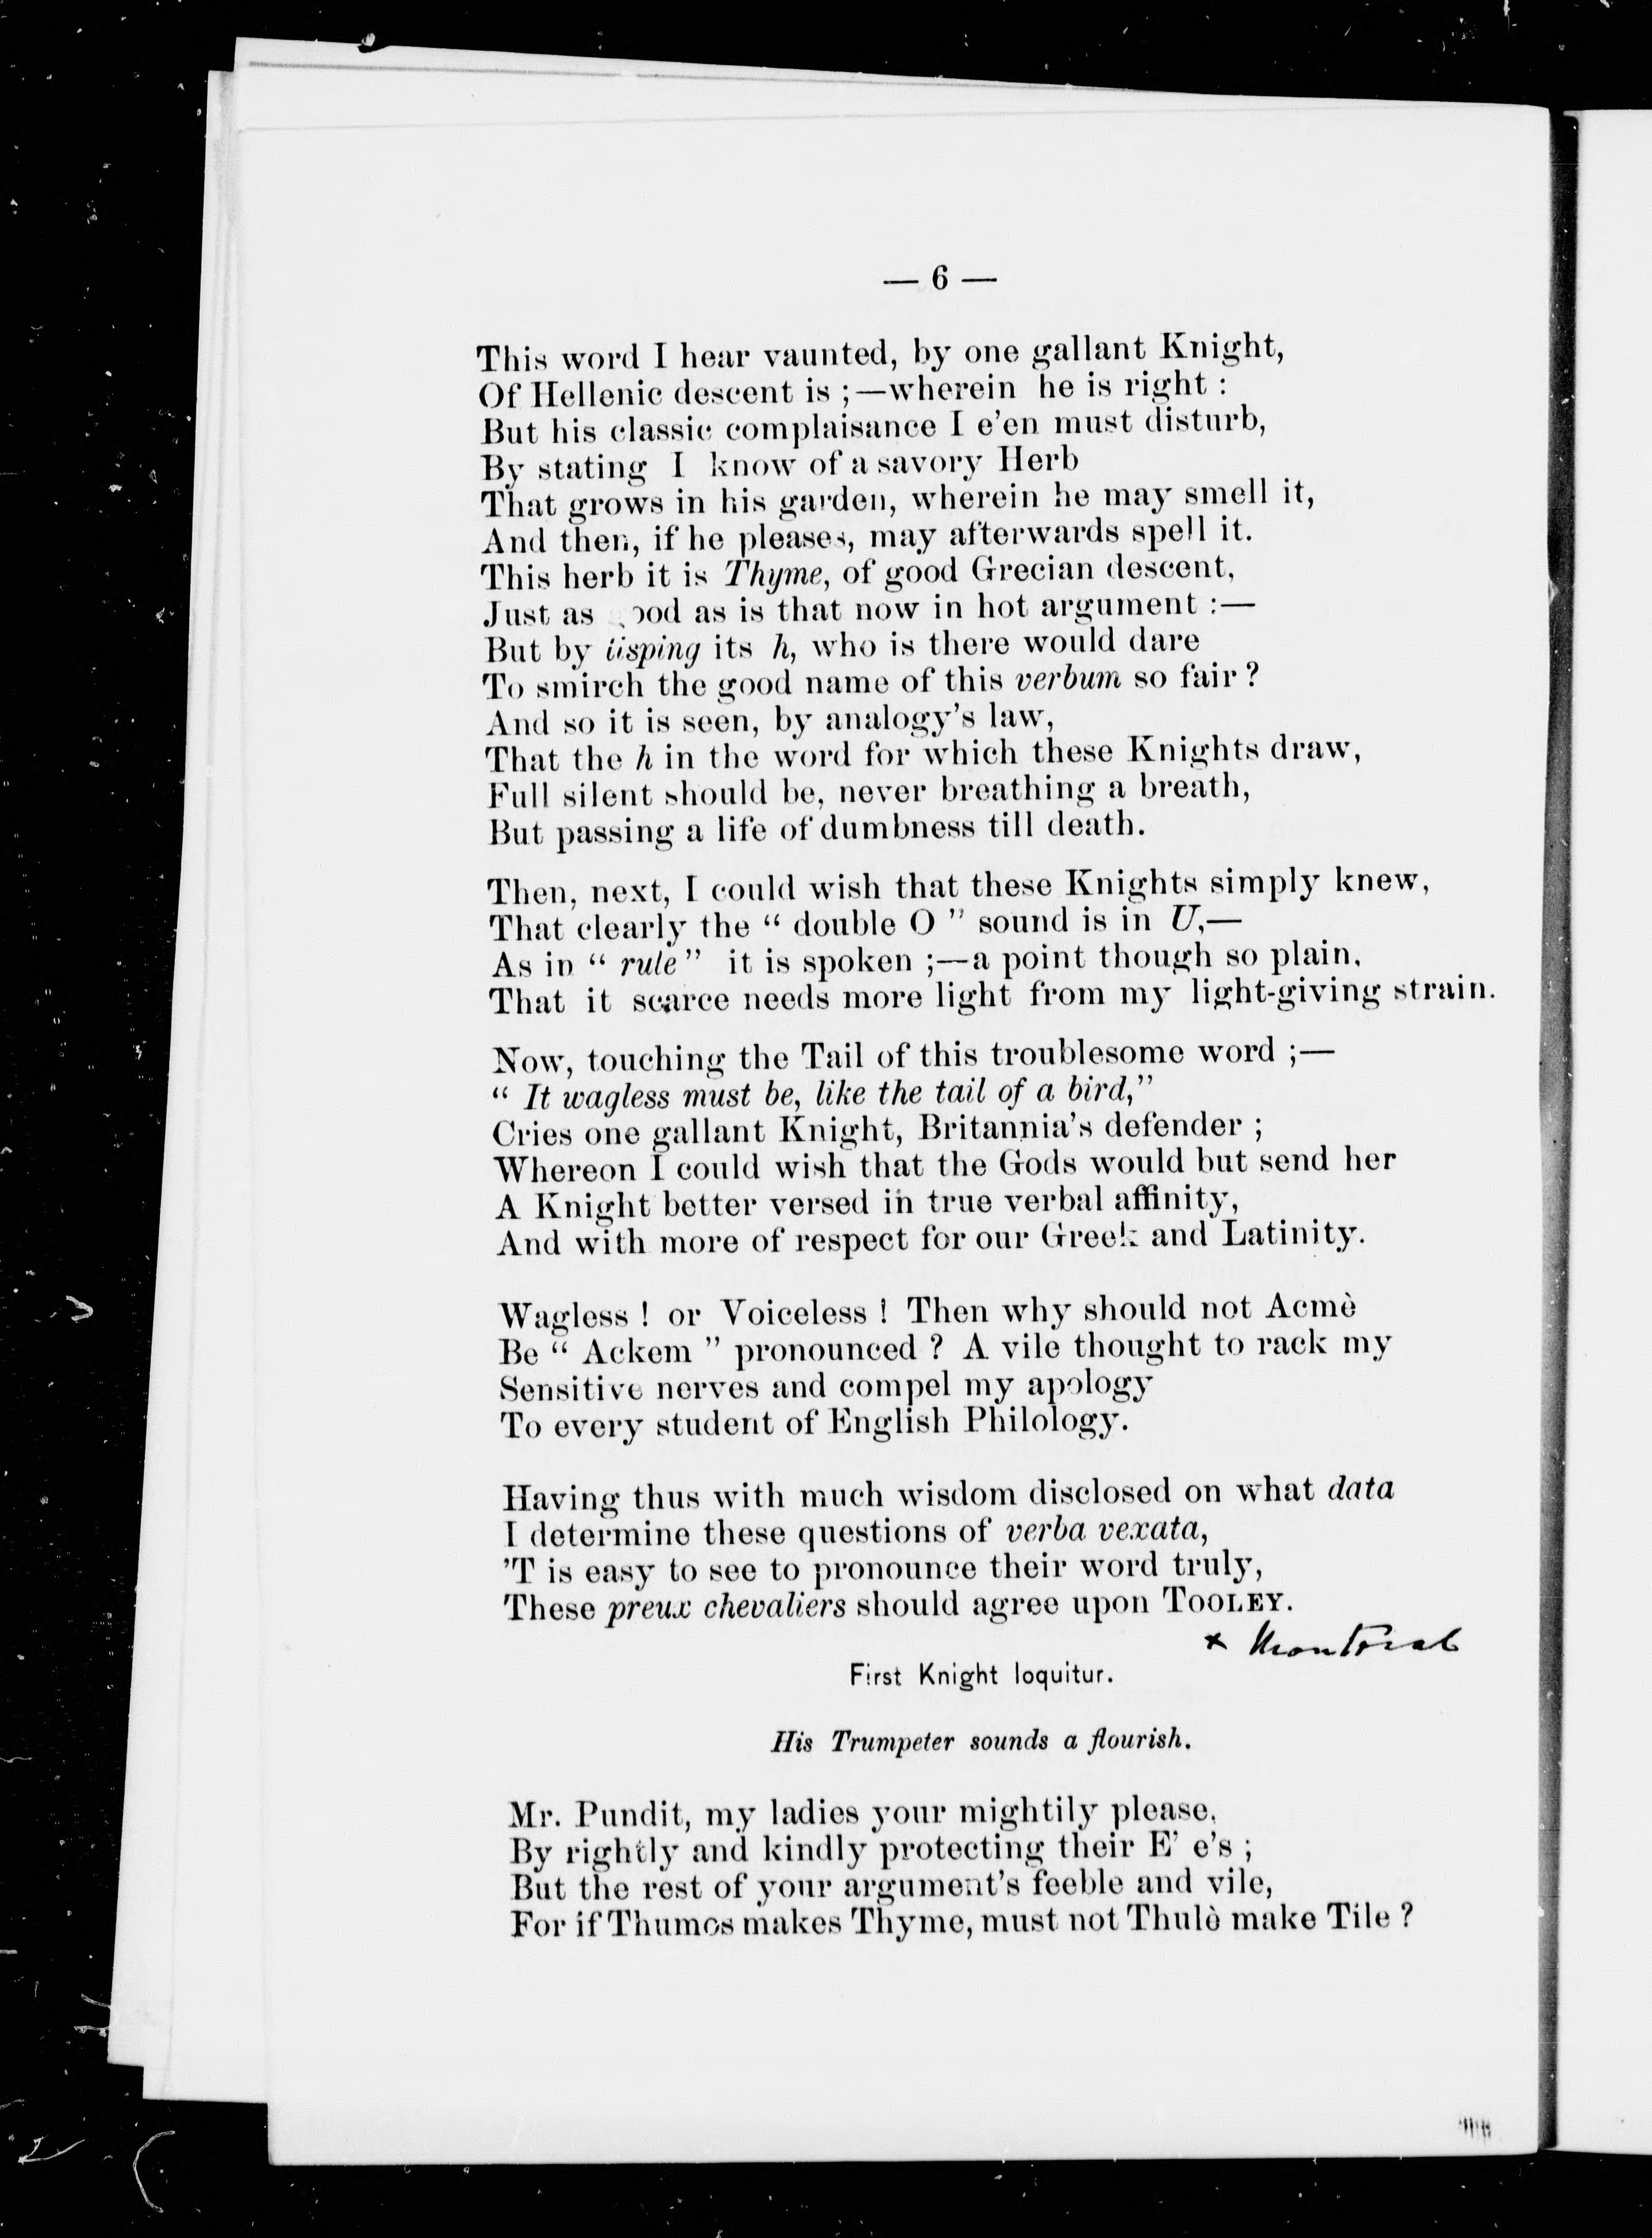 — 6 —
This word I hear vaunted, by one gallant Knight,
Of Hellenic descent is ;—wherein he is right :
But his classic complaisance I e'en must disturb,
By stating I know of a savory Herb
That grows in his garden, wherein he may smell it,
And then, if he pleases, may afterwards spell it.
This herb it is Thyme, of good Grecian descent,
Just as good as is that now in hot argument :—
But by lisping its h, who is there would dare
To smirch the good name of this verbum so fair ?
And so it is seen, by analogy's law,
That the h in the word for which these Knights draw,
Full silent should be, never breathing a breath,
But passing a life of dumbness till death.
Then, next, I could wish that these Knights simply knew,
That clearly the " double O " sound is in U,—
As in " rule " it is spoken ;—a point though so plain,
That it scarce needs more light from my light-giving strain.
Now, touching the Tail of this troublesome word ;—
" It wagless must be, like the tail of a bird,"
Cries one gallant Knight, Britannia's defender ;
Whereon I could wish that the Gods would but send her
A Knight better versed in true verbal affinity,
And with more of respect for our Greek and Latinity.
Wagless ! or Voiceless ! Then why should not Acmè
Be " Ackem " pronounced ? A vile thought to rack my
Sensitive nerves and compel my apology
To every student of English Philology.
Having thus with much wisdom disclosed on what data
I determine these questions of verba vexata,
'T is easy to see to pronounce their word truly,
These preux chevaliers should agree upon TOOLEY.
x Montreal
First Knight loquitur.
His Trumpeter sounds a flourish.
Mr. Pundit, my ladies your mightily please,
By rightly and kindly protecting their E' e's ;
But the rest of your argument's feeble and vile,
For if Thumos makes Thyme, must not Thulè make Tile ?